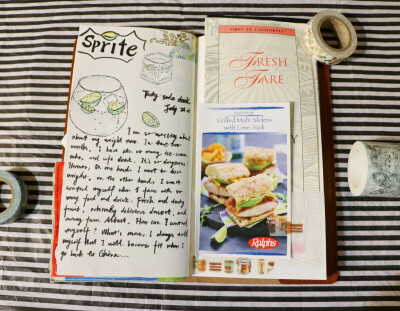 Sprite
Tasty soda drink
July 21st
I am so worrying about
about my weight now. In those two
months, I have put on many ice-cream
cake, and soft drink. It's so dangerous
However, on one hand, I want to lose
weight, on the other hand, I can't
control myself when I face with so
many food and drink. Fresh and dainty
fruit, extremely delicious dessert, and
How can I control
myself? What's more, I always tell
myself that I will become fit when I
go back to China...
FIRST IN CALIFORNIA
FRESH
FARE
Grilled Mahi Sliders
with Lime Aioli
Ralphs